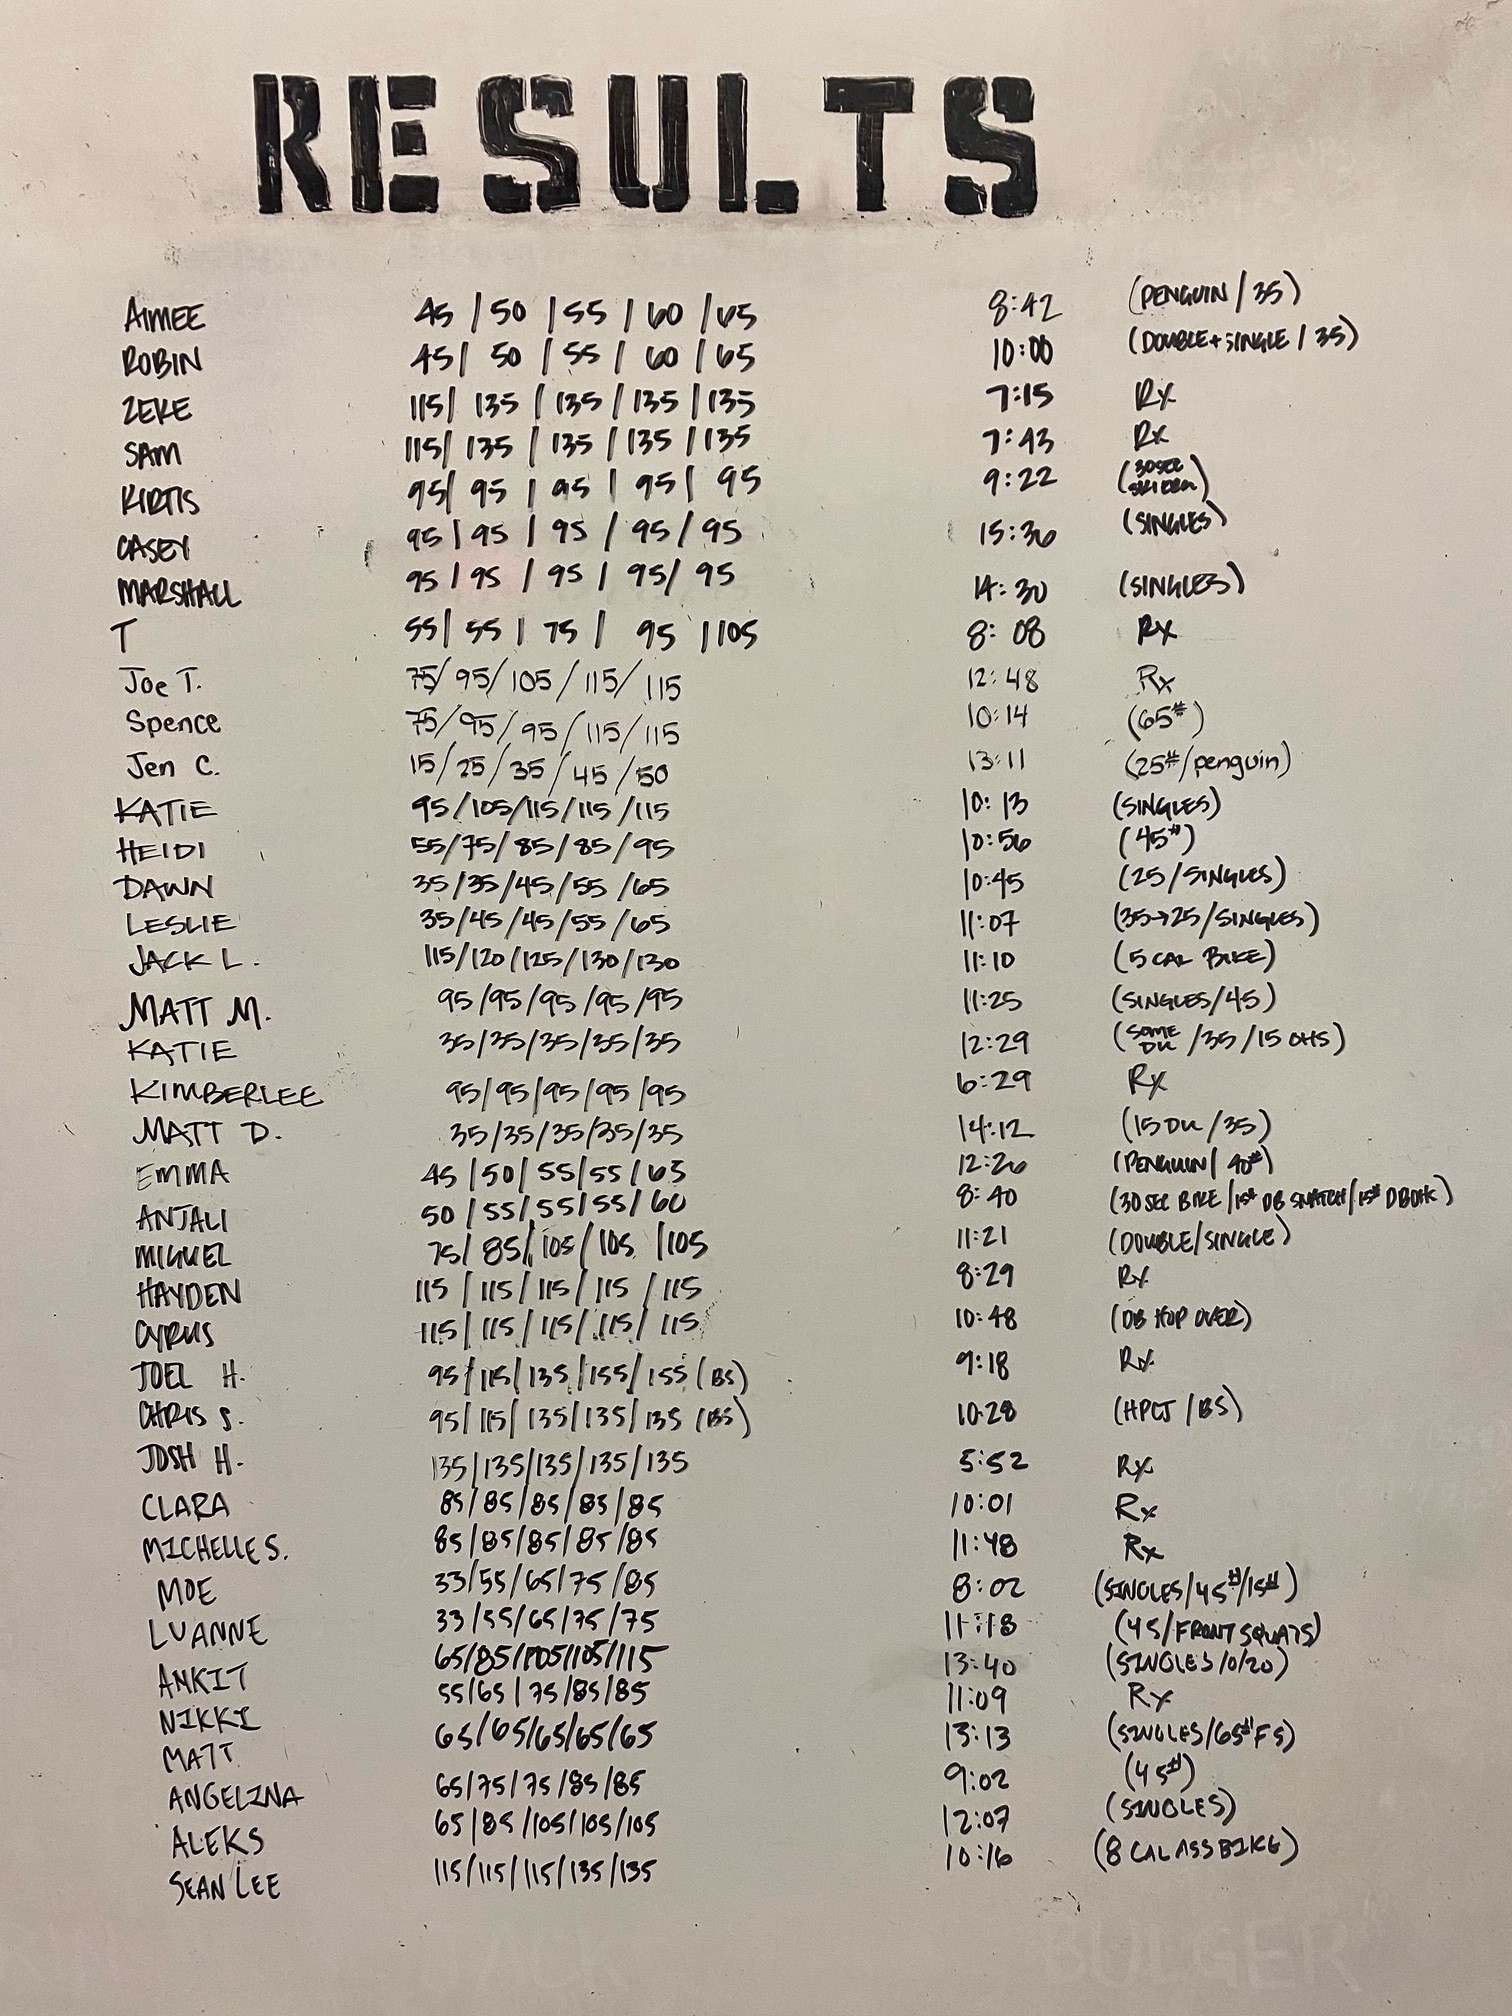 RESULTS
AIMEE 45 / 50 / 55 / 60 / 65 8:42 (PENGUIN / 35)
ROBIN 45 / 50 / 55 / 60 / 65 10:00 (DOUBLE+SINGLE / 35)
ZEKE 115 / 135 / 135 / 135 / 135 7:15 Rx
SAM 115 / 135 / 135 / 135 / 135 7:43 Rx
KIRTIS 95 / 95 / 95 / 95 / 95 9:22 (30SEC SKI ERG)
CASEY 95 / 95 / 95 / 95 / 95 15:36 (SINGLES)
MARSHALL 95 / 95 / 95 / 95 / 95 14:30 (SINGLES)
T 55 / 55 / 75 / 95 / 105 8:08 Rx
Joe T. 75/ 95/ 105 / 115/ 115 12:48 Rx
Spence 75/ 95/ 95 / 115/ 115 10:14 (65#)
Jen C. 15/ 25/ 35/ 45/ 50 13:11 (25#/penguin)
KATIE 95/105/115/115/115 10:13 (SINGLES)
HEIDI 55/75/85/85/95 10:56 (45#)
DAWN 35/35/45/55/65 10:45 (25/SINGLES)
LESLIE 35/45/45/55/65 11:07 (35→25/SINGLES)
JACK L. 115/120/125/130/130 11:10 (5 CAL BIKE)
MATT M. 95/95/95/95/95 11:25 (SINGLES/45)
KATIE 35/35/35/35/35 12:29 (SOME DU /35/15 OHS)
KIMBERLEE 95/95/95/95/95 6:29 Rx
MATT D. 35/35/35/35/35 14:12 (15 DU /35)
EMMA 45 / 50 / 55/55/65 12:26 (PENGUIN/ 40#)
ANJALI 50 / 55/55/55/ 60 8:40 (30 SEC BIKE /15# DB SNATCH/15# DBOH)
MIGUEL 75/ 85/ 105 / 105 / 105 11:21 (DOUBLE/SINGLE)
HAYDEN 115 / 115/ 115/ 115 / 115 8:29 Rx
CYRUS 115/ 115/ 115/ 115/ 115 10:48 (DB HOP OVER)
JOEL H. 95/115/135/155/155 (BS) 9:18 Rx
CHRIS S. 95/115/135/135/135 (BS) 10:28 (HPCJ /BS)
JOSH H. 135/135/135/135/135 5:52 Rx
CLARA 85/85/85/85/85 10:01 Rx
MICHELLE S. 85/85/85/85/85 11:48 Rx
MOE 33/55/65/75/85 8:02 (SINGLES/45#/15#)
LUANNE 33/55/65/75/75 11:18 (45/FRONT SQUATS)
ANKIT 65/85/105/105/115 13:40 (SINGLES/0/20)
NIKKI 55/65/75/85/85 11:09 Rx
MATT 65/65/65/65/65 13:13 (SINGLES/65# FS)
ANGELINA 65/75/75/85/85 9:02 (45#)
ALEKS 65/85/105/105/105 12:07 (SINGLES)
SEAN LEE 115/115/115/135/135 10:16 (8 CAL ASS BIKE)
BULGER